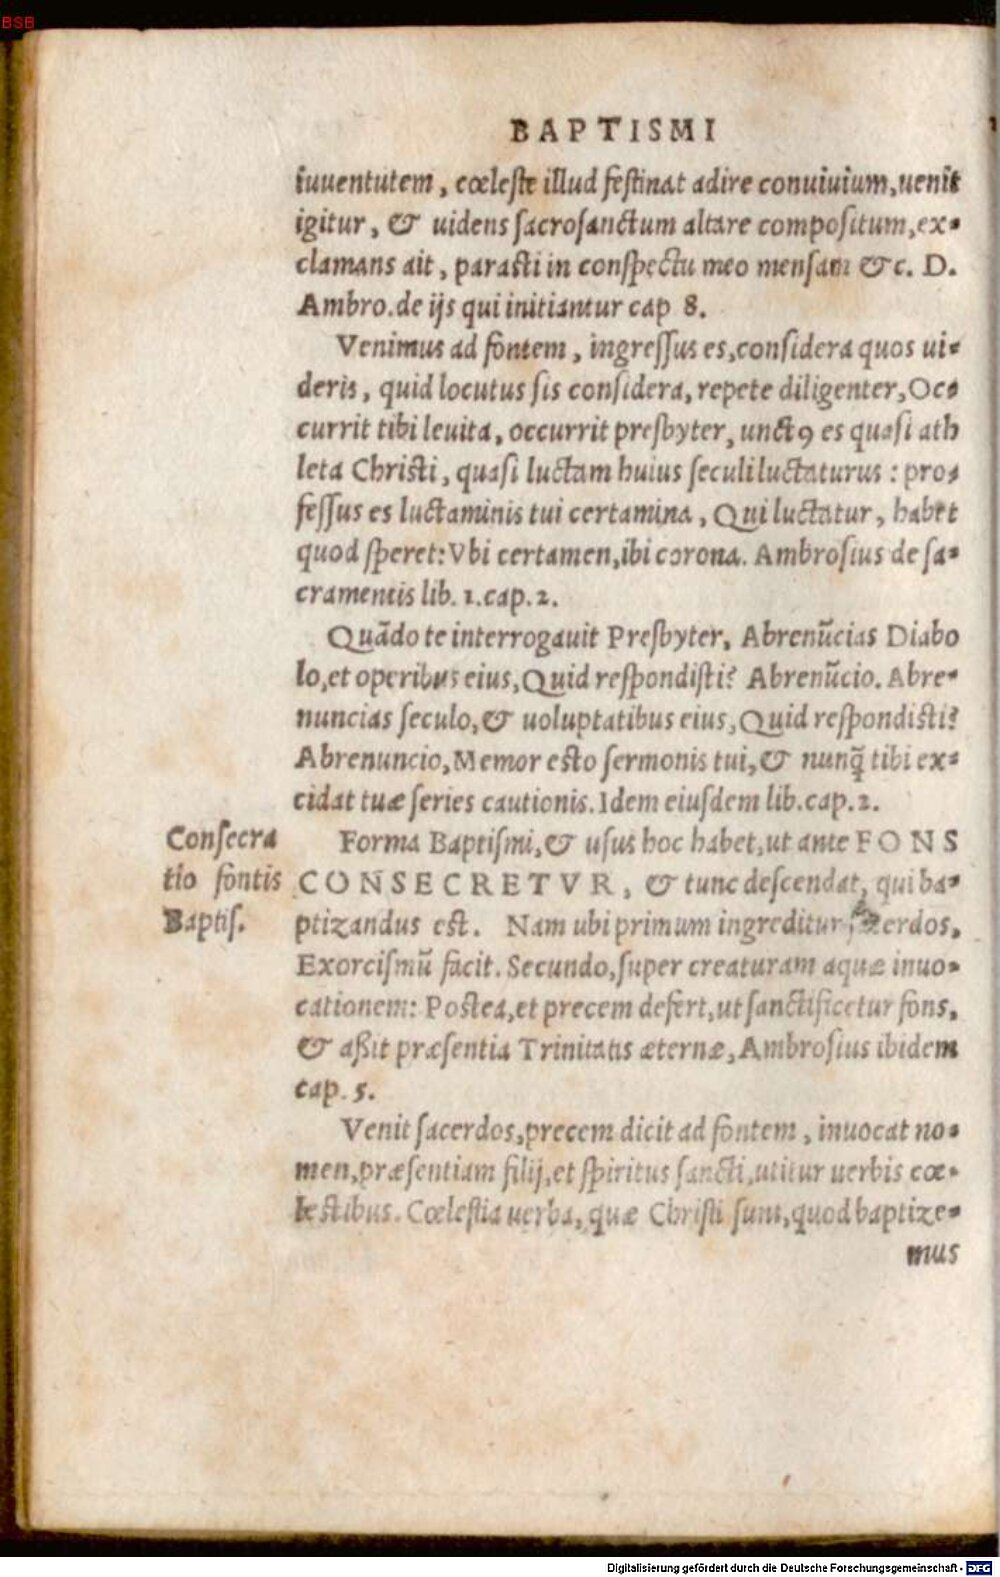 BSB
BAPTISMI
iuuentutem, cœleste illud festinat adire conuiuium, uenit
igitur, & uidens sacrosanctum altare compositum, ex-
clamans ait, parasti in conspectu meo mensam &c. D.
Ambro. de ijs qui initiantur cap 8.
Venimus ad fontem, ingressus es, considera quos ui-
deris, quid locutus sis considera, repete diligenter, Oc-
currit tibi leuita, occurrit presbyter, unctꝰ es quasi ath
leta Christi, quasi luctam huius seculi luctaturus: pro-
fessus es luctaminis tui certamina, Qui luctatur, habet
quod speret: Vbi certamen, ibi corona. Ambrosius de sa-
cramentis lib. 1. cap. 2.
Quādo te interrogauit Presbyter, Abrenūcias Diabo
lo, et operibus eius, Quid respondisti? Abrenūcio. Abre-
nuncias seculo, & uoluptatibus eius, Quid respondisti?
Abrenuncio, Memor esto sermonis tui, & nunq̄ tibi ex-
cidat tuæ series cautionis. Idem eiusdem lib. cap. 2.
Consecra
tio fontis
Baptis.
Forma Baptismi, & usus hoc habet, ut ante FONS
CONSECRETVR, & tunc descendat, qui ba-
ptizandus est. Nam ubi primum ingreditur sacerdos,
Exorcismū facit. Secundo, super creaturam aquæ inuo-
cationem: Postea, et precem defert, ut sanctificetur fons,
& aßit præsentia Trinitatis æternæ, Ambrosius ibidem
cap. 5.
Venit sacerdos, precem dicit ad fontem, inuocat no-
men, præsentiam filij, et spiritus sancti, utitur uerbis cœ-
lestibus. Cœlestia uerba, quæ Christi sunt, quod baptize-
mus
Digitalisierung gefördert durch die Deutsche Forschungsgemeinschaft - DFG